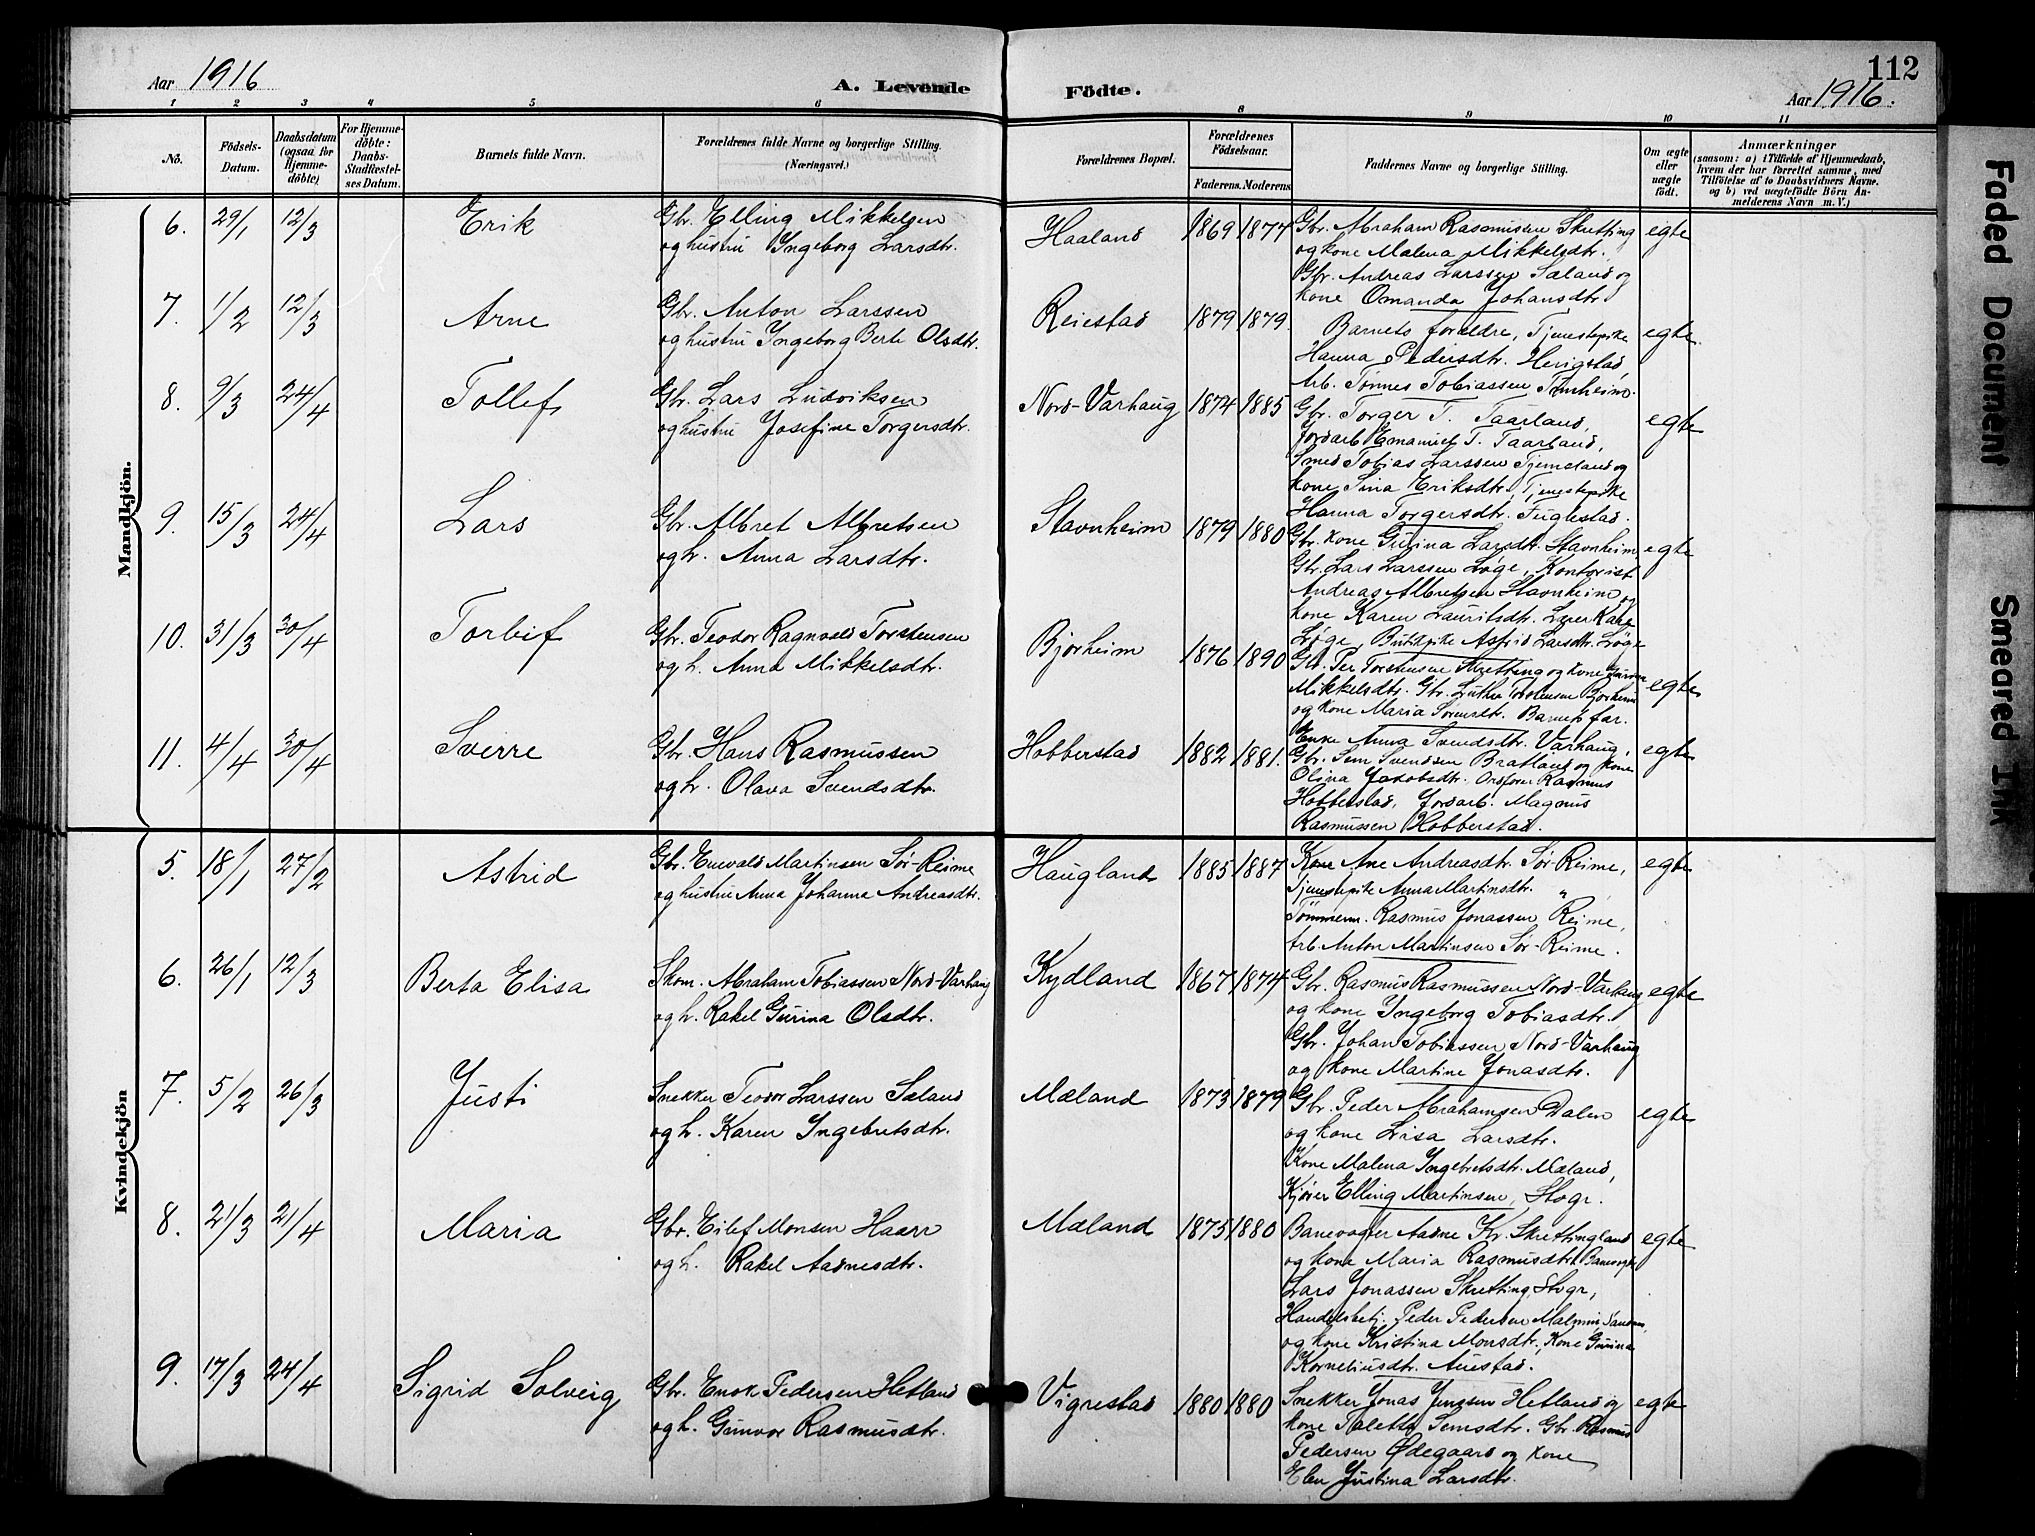 112
Aar 1916 A. Levende Födte. Aar 1916.
1 2 3 4 5 6 8 9 10 11
No.
Födsels-
Datum.
Daabsdatum
(ogsaa for
Hjemme-
döbte)
For Hjemme-
döbte:
Daabs-
Stadfæstel-
ses Datum.
Barnets fulde Navn.
Forældrenes fulde Navne og borgerlige Stilling.
(Næringsvei.)
Forældrenes Bopæl.
Forældrenes
Födselsaar.
Faderens. Moderens
Faddernes Navne og borgerlige Stilling.
Om ægte
eller
uægte
födt.
Anmærkninger
(saasom: a) i Tilfælde af Hjemmedaab,
hvem der har forrettet samme, med
Tilföielse af to Daabsvidners Navne.
og b) ved uægtefödte Börn An-
melderens Navn m. V.)
Mandkjön.
6. 29/1 12/3 Erik
Gbr. Elling Mikkelsen
og hustru Ingeborg Larsdtr.
Haaland 1869 1877
Gbr. Abraham Rasmussen Skretting
og kone Malena Mikkelsdtr.
Gbr. Andreas Larssen Sæland og
kone Omanda Johansdtr.
egte
7. 1/2 12/3 Arne
Gbr. Anton Larssen
og hustru Ingeborg Berte Olsdtr.
Reiestad 1879 1879.
Barnets foreldre, Tjenestepike
Hanna Pedersdtr. Herigstad,
Arb. Tønnes Tobiassen
egte.
8. 9/3 24/4 Tollef
Gbr. Lars Ludviksen
og hustru Josefine Torgersdtr.
Nord-Varhaug 1874 1885
Gbr. Torger T. Taarland,
Jordarb. Emanuel T. Taarland,
Smed Tobias Larssen Tjemeland og
kone Sina Eriksdtr., Tjenestepike
Hanna Torgersdtr. Fuglestad.
egte
9. 15/3 24/4 Lars
Gbr. Albret Albretsen
og h. Anna Larsdtr.
Stavnheim 1879 1880
Gbr. kone Gurina Larsdtr. Stavnheim
Gbr. Lars Larssen Løge, Kontorist
Andreas Albretsen Stavnheim og
kone Karen Lauritsdtr.
Løge, Butikpike Astrid Larsdtr. Løge
egte
10. 31/3 30/4 Torleif
Gbr. Teodor Ragnvald Torstensen
og h. Anna Mikkelsdtr.
Bjorheim 1876 1890
Gbr. Per Torstensen Skretting og kone
Mikkelsdtr. Gbr. Luther Torstensen Bjorheim
og kone Maria Sørensdtr. Barnets far.
egte
11. 4/4 30/4 Sverre
Gbr. Hans Rasmussen
og h. Olava Svendsdtr.
Hobberstad 1882 1881.
Enke Anna Svendsdtr. Varhaug,
Gbr. Sem Svendsen Bratland og kone
Olina Jakobsdtr. Ordfører Rasmus
Hobberstad, Jordarb. Magnus
Rasmussen Hobberstad.
egte
Kvindekjön
5. 18/1 27/2 Astrid
Gbr. Enevald Martinsen Sør-Reime
og hustru Anna Johanna Andreasdtr.
Haugland 1885 1887
Kone Ane Andreasdtr. Sør-Reime,
Tjenestepike Anna Martinsdtr. "
Tømmerm. Rasmus Jonassen Reime,
Arb. Anton Martinsen Sør-Reime.
egte
6. 26/1 12/3 Berta Elisa
Skom. Abraham Tobiassen Nord-Varhaug
og h. Rakel Gurina Olsdtr.
Kydland 1867 1874
Gbr. Rasmus Rasmussen Nord-Varhaug
og kone Ingeborg Tobiasdtr.
Gbr. Johan Tobiassen Nord-Varhaug
og kone Martine Jonasdtr.
egte
7. 5/2 26/3 Justi
Snekker Teodor Larssen Sæland
og h. Karen Ingebretsdtr.
Mæland 1873 1879
Gbr. Peder Abrahamsen Dalen
og kone Lisa Larsdtr.
Kone Malena Ingebretsdtr. Mæland,
Kjører Elling Martinsen, Stvgr.
egte
8. 21/3 21/4 Maria
Gbr. Eilef Monsen Haarr
og h. Rakel Aadnesdtr.
Mæland 1875 1880
Banevogter Aadne Kr. Skrettingland
og kone Maria Rasmusdtr. Banevogter
Lars Jonassen Skretting, Stvgr,
Handelsbetj. Peder Pedersen Malmin,
og kone Kristina Monsdtr., Kone Gurina
Korneliusdtr. Auestad.
egte
9. 17/3 24/4 Sigrid Solveig
Gbr. Enok Pedersen Hetland
og h. Gunvor Rasmusdtr.
Vigrestad 1880 1880
Snekker Jonas Jenssen Hetland og
kone Taletta Semsdtr. Gbr. Rasmus
Pedersen Ødegaard og kone
Elen Justina Larsdtr.
egte
Faded Document
Smeared Ink